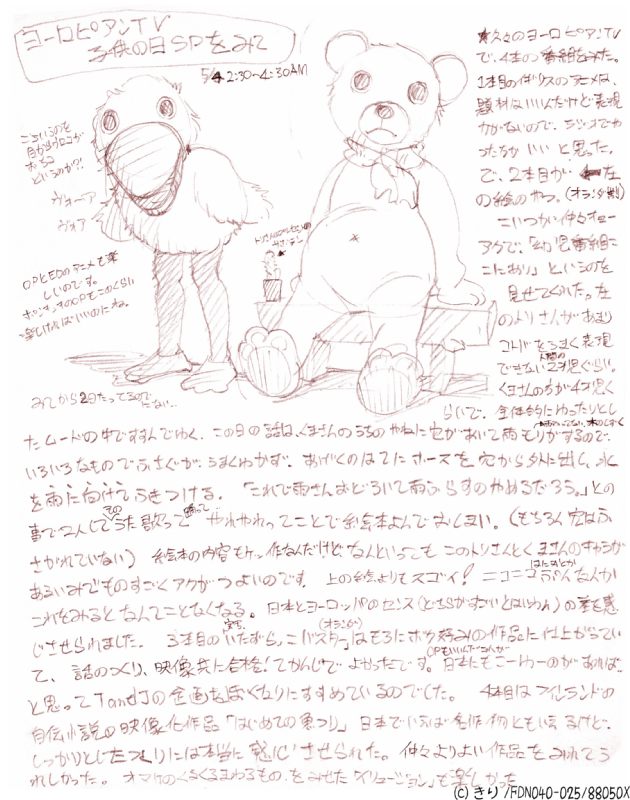 ヨーロピアンTV
子供の日SPをみて
5/4 2:30~4:30AM
久々のヨーロピアンTV
で、4本の番組をみた。
1本目のイギリスのアニメは、
題材はいいんだけど表現
力がないので、ラジオでや
ったらがいいと思った。
で、2本目が左
の絵のやつ。(オランダ製)
こいつがい仲々オモー
アクで、「幼児番組こ
こにあり」というのを
見せてくれた。左
のトリさんがあまり
コトバをうまく表現
できない人間の2才児ぐらい。
くまさんの方が4才児く
らいで、全体的にゆったりとし
たムードの中ですすんでゆく。この日の話は、くまさんのうちのやねに穴があいて雨もりがするので、
いろいろなものでふさぐが、うまくいかず、あげくのはてにホースを穴から外に出し、水
を雨に向けてふきつける。「これで雨さんおどろいて雨ふらすのやめるだろう。」との
事で2人してそのうた歌って踊って やれやれってことで絵本よんでおしまい。(もちろん穴はふ
さがれていない) 絵本の内容もケッ作なんだけど、なんといってもこのトリさんとくまさんのキャラが
あるいみでものすごくアクがつよいのです。上の絵よりもスゴイ! ニコニコぷんなんか
これをみるとなんてことなくなる。日本とヨーロッパのセンス(どちらがすごいとはいわん)の差を感
じさせられました。 3本目の「いたずら
はもろにボク好みの作品に仕上がってい
て、話のつくり、映像共に合格!てかんじでよかったです。OPもいいんだこれが 日本にもこーゆーのがあれば…
と思ってTandJの企画をぼくなりにすすめているのでした。 4本目はフィンランドの
自伝小説の映像化作品「はじめての魚つり」日本でいえば名作物ともいえるけど、
しっかりとしたつくりには本当に感心させられた。仲々よりよい作品をみれてう
れしかった。オマケのくるくるまわるものをみせた「イリュージョン」も楽しかった
こういうのを
目からウロコが
おちる
というのか?!
ヴォーア
ヴォア
OPとEDのアニメも楽
しいのです。
ポンキッキのOPもこのくらい
楽しければいいのにね。
みてから2日たってるので
(C) きり /FDN040-025/88050X